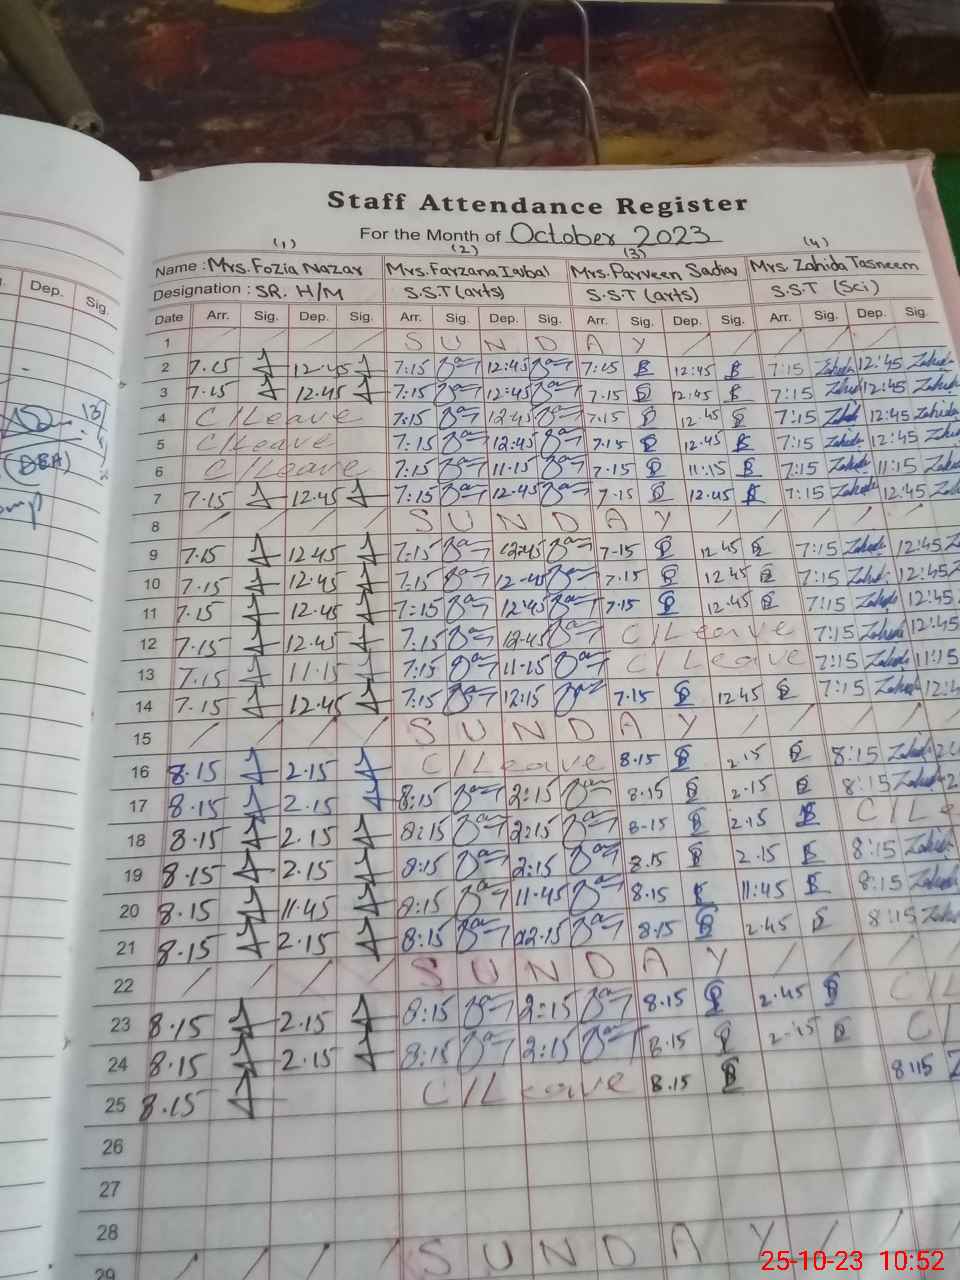 Staff Attendance Register
For the Month of October 2023
(1) (2) (3) (4)
Name : Mrs. Fozia Nazar Mrs. Farzana Iqbal Mrs. Parveen Sadiq Mrs. Zahida Tasneem
Designation : SR. H/M S.S.T (arts) S.S.T (arts) S.S.T (Sci)
Dep. Sig.
Date Arr. Sig. Dep. Sig. Arr. Sig. Dep. Sig. Arr. Sig. Dep. Sig. Arr. Sig. Dep. Sig.
1 SUNDAY
2 7.15 12.45 7:15 12:45 7:15 12:45 7:15 Zahida 12:45 Zahida
3 7.15 12.45 7:15 12:45 7.15 12:45 7:15 Zahida 12:45 Zahida
4 C/Leave 7:15 12:45 7.15 12.45 7:15 Zahida 12:45 Zahida
5 C/Leave 7:15 12:45 7.15 12.45 7:15 Zahida 12:45 Zahida
6 C/Leave 7:15 11:15 7.15 11:15 7:15 Zahida 11:15 Zahida
(DEA)
7 7.15 12.45 7:15 12:45 7.15 12.45 7:15 Zahida 12:45
8 SUNDAY
9 7.15 12.45 7:15 12:45 7.15 12.45 7:15 Zahida 12:45
10 7.15 12.45 7:15 12:45 7.15 12.45 7:15 Zahida 12:45
11 7.15 12.45 7:15 12:45 7.15 12.45 7:15 Zahida 12:45
12 7.15 12.45 7:15 12:45 C/Leave 7:15 Zahida 12:45
13 7.15 11.15 7:15 11:15 C/Leave 7:15 Zahida 11:15
14 7.15 12.45 7:15 12:15 7.15 12.45 7:15 Zahida
15 SUNDAY
16 8.15 2.15 C/Leave 8.15 2.15 8:15 Zahida
17 8.15 2.15 8:15 2:15 8.15 2.15 8:15 Zahida
18 8.15 2.15 8:15 2:15 8.15 2.15 C/Le
19 8.15 2.15 8:15 2:15 8.15 2.15 8:15 Zahida
20 8.15 11.45 8:15 11:45 8.15 11:45 8:15 Zahida
21 8.15 2.15 8:15 2:15 8.15 2.45 8:15 Zahida
22 SUNDAY
23 8.15 2.15 8:15 2:15 8.15 2.45 C/L
24 8.15 2.15 8:15 2:15 8.15 2.45 C/
25 8.15 C/Leave 8.15 8:15
26
27
28
29 SUNDAY
25-10-23 10:52